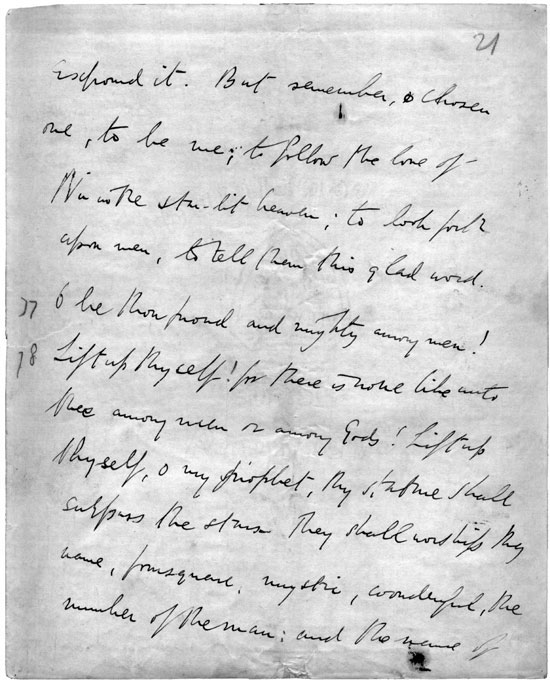 21
expound it. But remember, o chosen
one, to be me; to follow the love of
Nu in the star-lit heaven; to look forth
upon men, to tell them this glad word.
77 O be thou proud and mighty among men!
78 Lift up thyself! for there is none like unto
thee among men or among Gods! Lift up
thyself, o my prophet, thy stature shall
surpass the stars. They shall worship thy
name, foursquare, mystic, wonderful, the
number of the man; and the name of